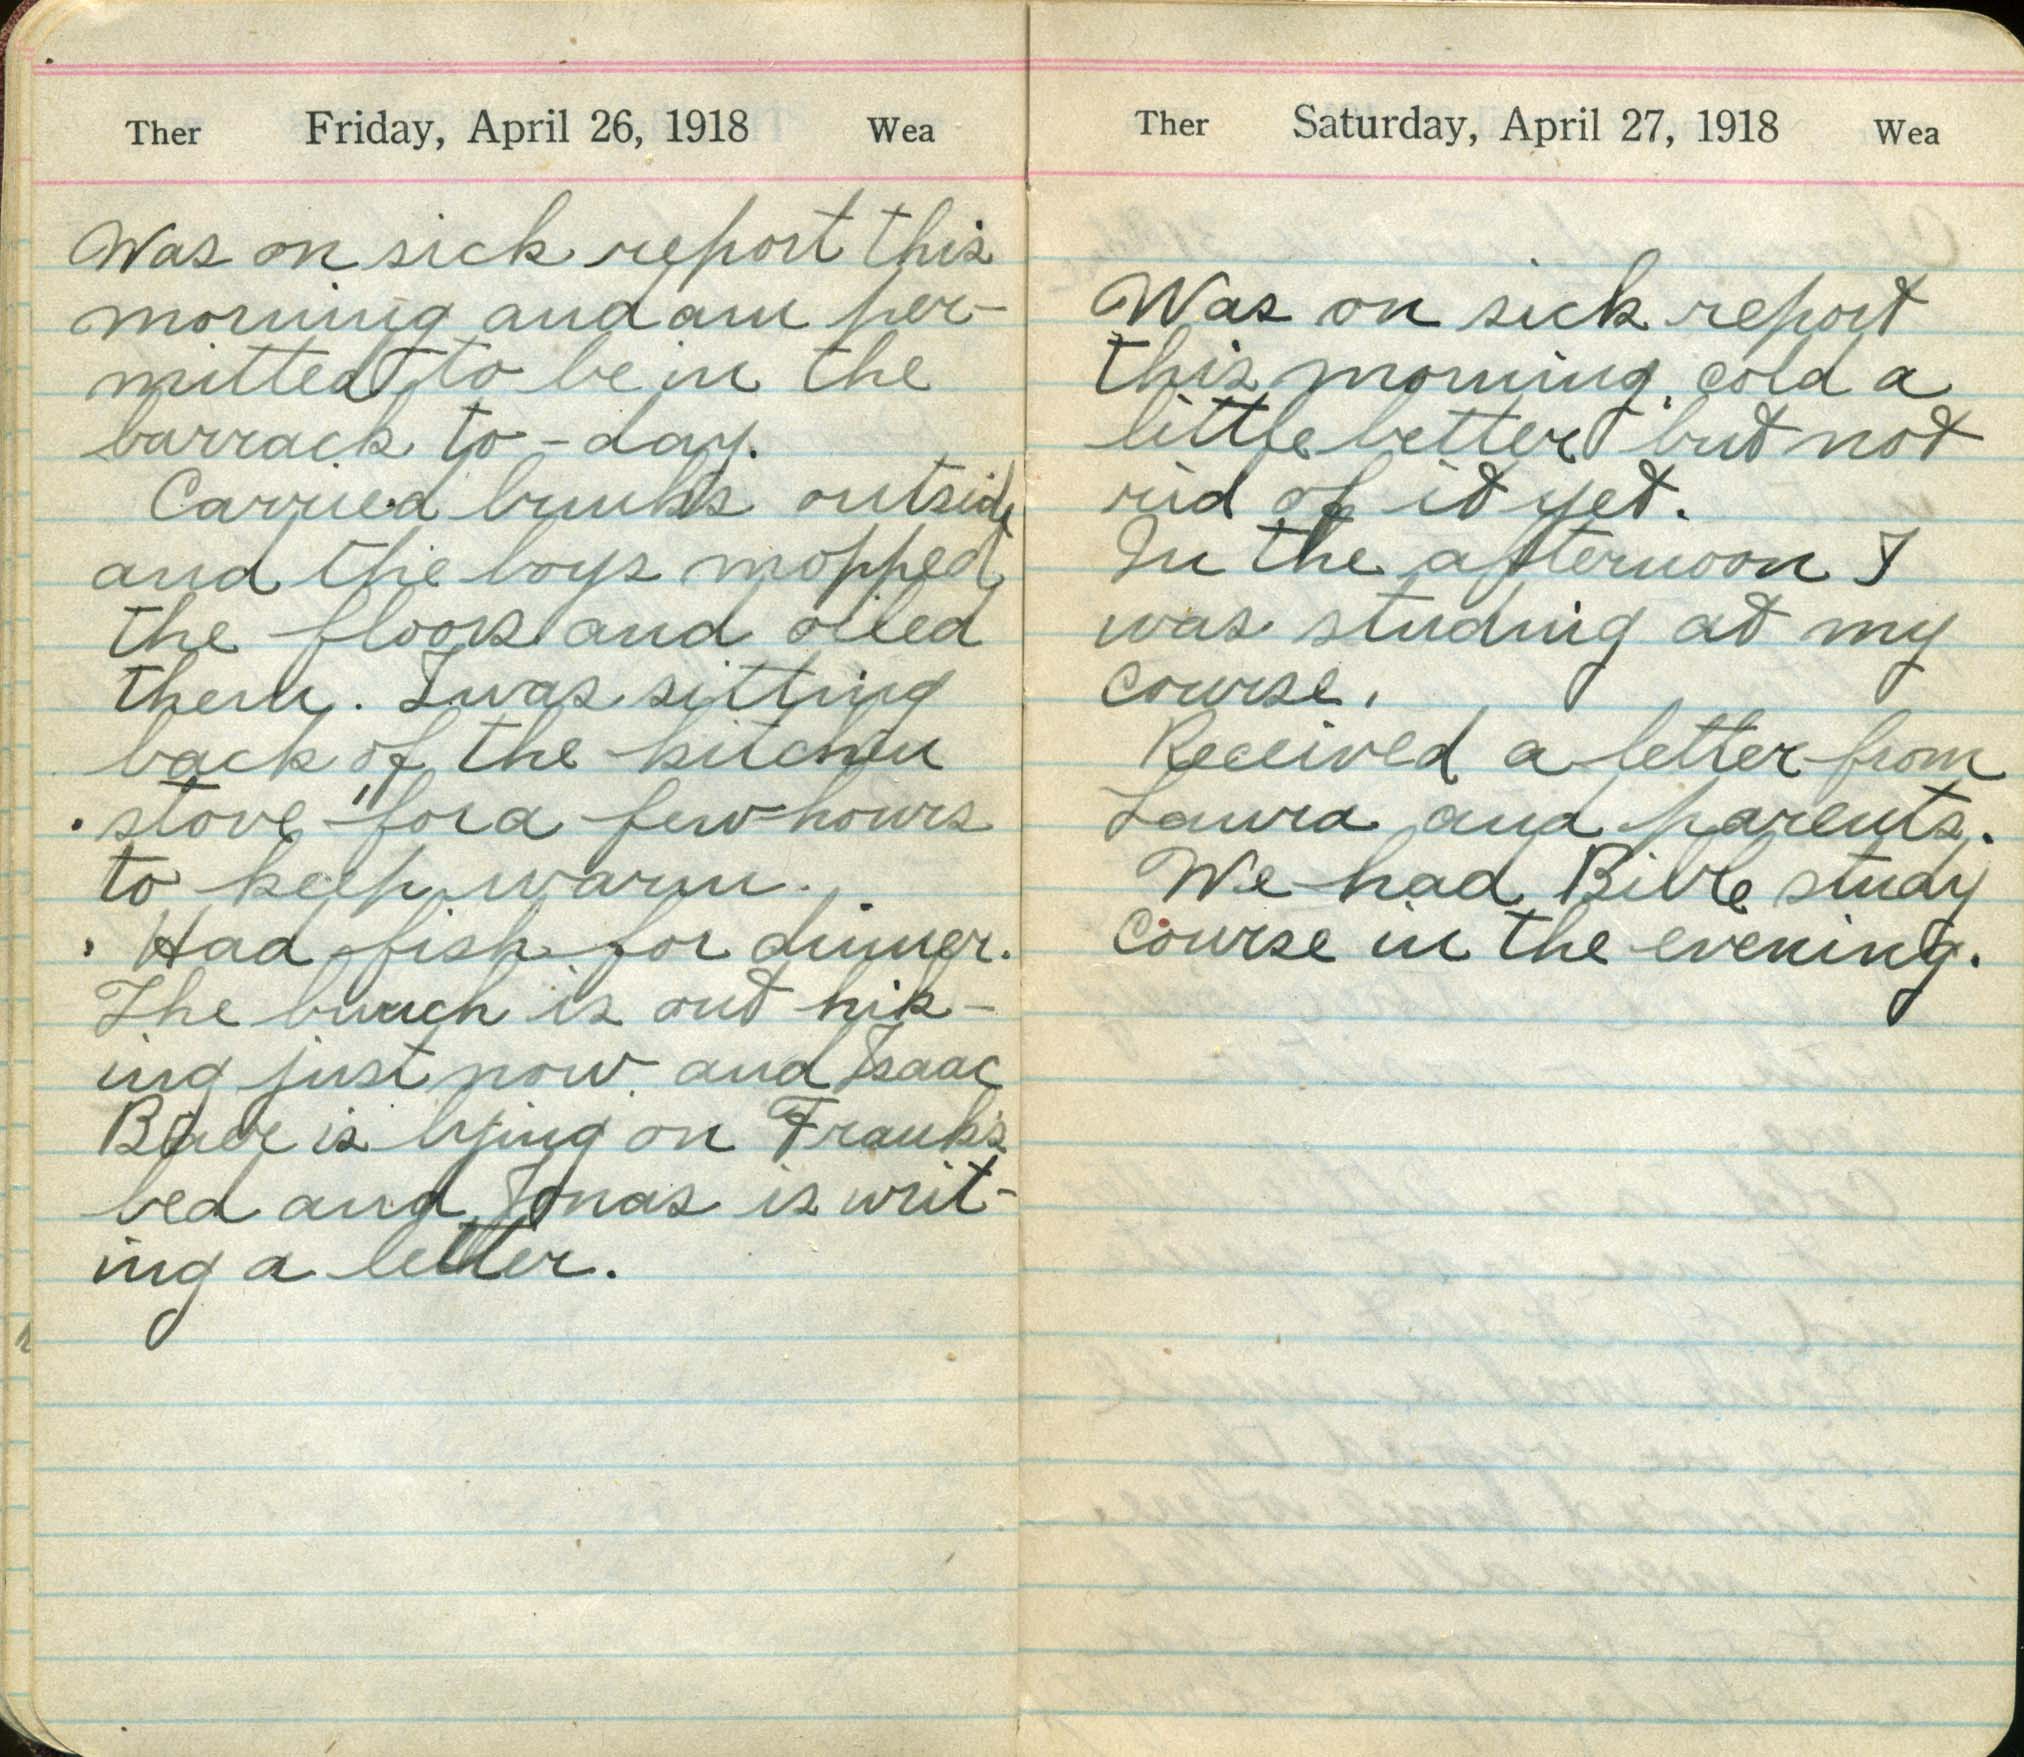 Ther Friday, April 26, 1918 Wea
Was on sick report this
morning and am per-
mitted to be in the
barrack to-day.
Carried bunks outside
and the boys mopped
the floors and oiled
them. I was sitting
back of the kitchen
stove for a few hours
to keep warm.
Had fish for dinner.
The bunch is out hik-
ing just now and Isaac
Baer is lying on Frank's
bed and Jonas is writ-
ing a letter.
Ther Saturday, April 27, 1918 Wea
Was on sick report
this morning, cold a
little better but not
rid of it yet.
In the afternoon I
was studing at my
course.
Received a letter from
Laura and parents.
We had Bible study
course in the evening.